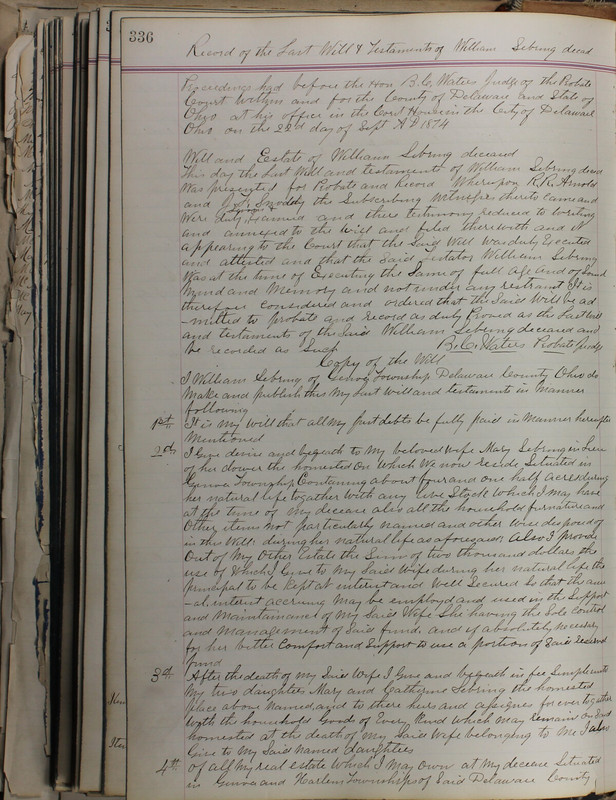 336
Record of the Last Will & Testaments of William Sebring decd
Proceedings had before the Hon B.C. Waters Judge of the Probate
Court within and for the County of Delaware and State of
Ohio at his office in the Court House in the City of Delaware
Ohio on the 22d day of Sept A D 1874
Will and Estate of William Sebring deceased
This day the Last Will and testament of William Sebring decd
was presented for Probate and Record Whereupon R.R. Arnold
and the Subscribing witnesses thereto came and
were duly Examined and there testimony reduced to writing
and annexed to the Will and filed therewith and it
appearing to the Court that the Said Will was duly Executed
and attested and that the Said testator William Sebring
was at the time of Executing the Same of full age and of Sound
Mind and Memory and not under any restraint It is
therefore Considered and ordered that the Said Will be ad
-mitted to probate and Record as duly Proved as the Last Will
and testaments of the Said William Sebring deceased and
be recorded as Such B.C. Waters Probate Judge
Copy of the Will
I William Sebring of Genoa Township Delaware County Ohio do
Make and publish this My Last Will and testament in Manner
following
1st It is my Will that all my just debts be fully paid in Manner hereafter
Mentioned
2d I Give devise and bequeath to My beloved Wife Mary Sebring in Lieu
of her dower the homested on Which We now reside Situated in
Genoa Township Containing about four and one half acres during
her natural life together with any live Stock Which I may have
at the time of my decease also all the household furniture and
Other items not particularly named and other wise disposed of
in this Will during her natural life as aforesaid Also I provide
Out of My Other Estate the Sum of two thousand dollars the
use of Which I Give to My Said Wife during her natural life the
principal to be Kept at interest and Well Secured So that the ann
-al interest accruing May be employed and used in the Support
and Maintainance of My Said Wife She having the Sole Control
and Management of Said fund and if absolutely necessary
for her better Comfort and Support to use a portion of Said
fund
3d After the death of My Said Wife I Give and bequeath in fee Simple unto
My two daughters Mary and Catherine Sebring the homested
place above Named and to there heirs and assignes forever together
With the household Goods of Every Kind which may remain on Said
homested at the death of my Said Wife belonging to Me I also
Give to My Said named daughters
4th Of all my real estate Which I May Own at My decease Situated
in Genoa and Harlem Townships of Said Delaware County